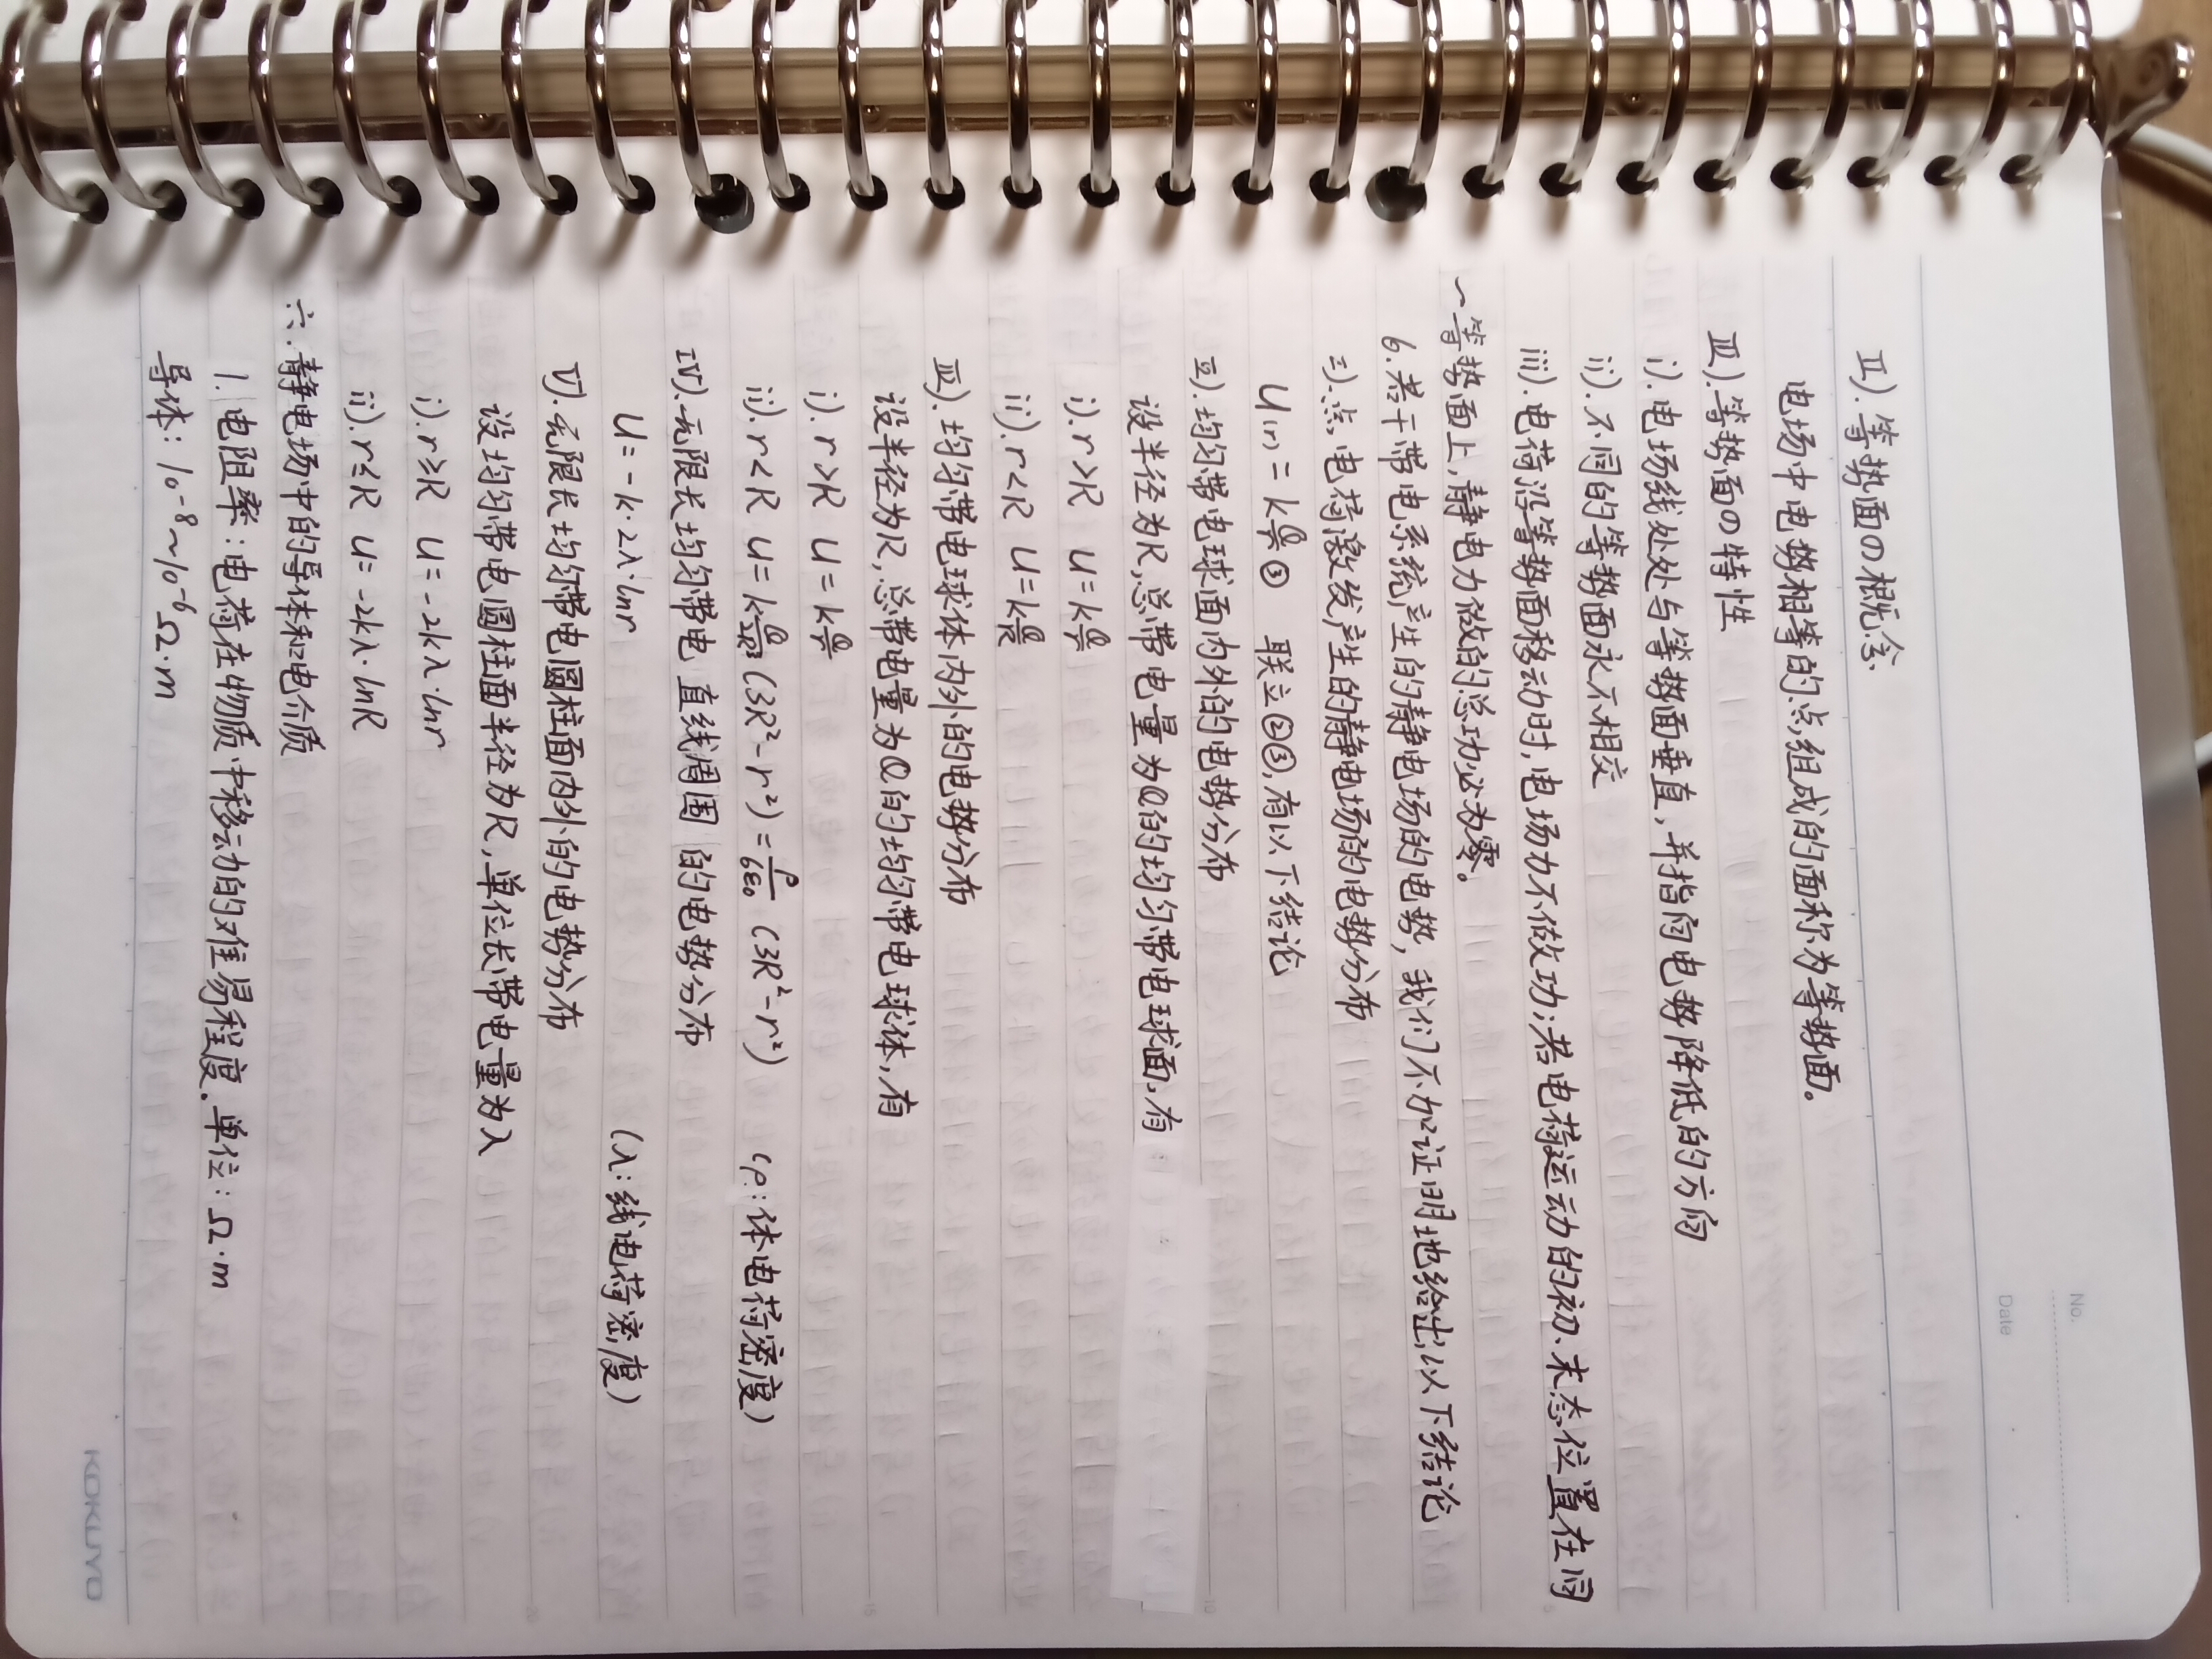 No.
Date
II). 等势面の概念
电场中电势相等的点组成的面称为等势面。
III). 等势面の特性
i). 电场线处处与等势面垂直，并指向电势降低的方向
ii). 不同的等势面永不相交
iii). 电荷沿等势面移动时,电场力不做功;若电荷运动的初、末态位置在同
一等势面上,静电力做的总功必为零。
6. 若干带电系统产生的静电场的电势, 我们不加证明地给出以下结论
I). 点电荷激发产生的静电场的电势分布
U(r) = k Q/r ③ 联立②③,有以下结论
II). 均匀带电球面内外的电势分布
设半径为R,总带电量为Q的均匀带电球面,有
i). r>R U=k Q/r
ii). r<R U=k Q/R
III). 均匀带电球体内外的电势分布
设半径为R,总带电量为Q的均匀带电球体,有
i). r>R U=k Q/r
ii). r<R U=k Q/2R³ (3R²-r²) = ρ/6ε₀ (3R²-r²) (ρ:体电荷密度)
IV). 无限长均匀带电直线周围的电势分布
U=-k·2λ·lnr (λ:线电荷密度)
V). 无限长均匀带电圆柱面内外的电势分布
设均匀带电圆柱面半径为R,单位长带电量为λ
i) r≥R U=-2kλ·lnr
ii). r≤R U=-2kλ·lnR
六. 静电场中的导体和电介质
1. 电阻率:电荷在物质中移动的难易程度。单位:Ω·m
导体: 10⁻⁸~10⁻⁶Ω·m
5
10
15
20
KOKUYO